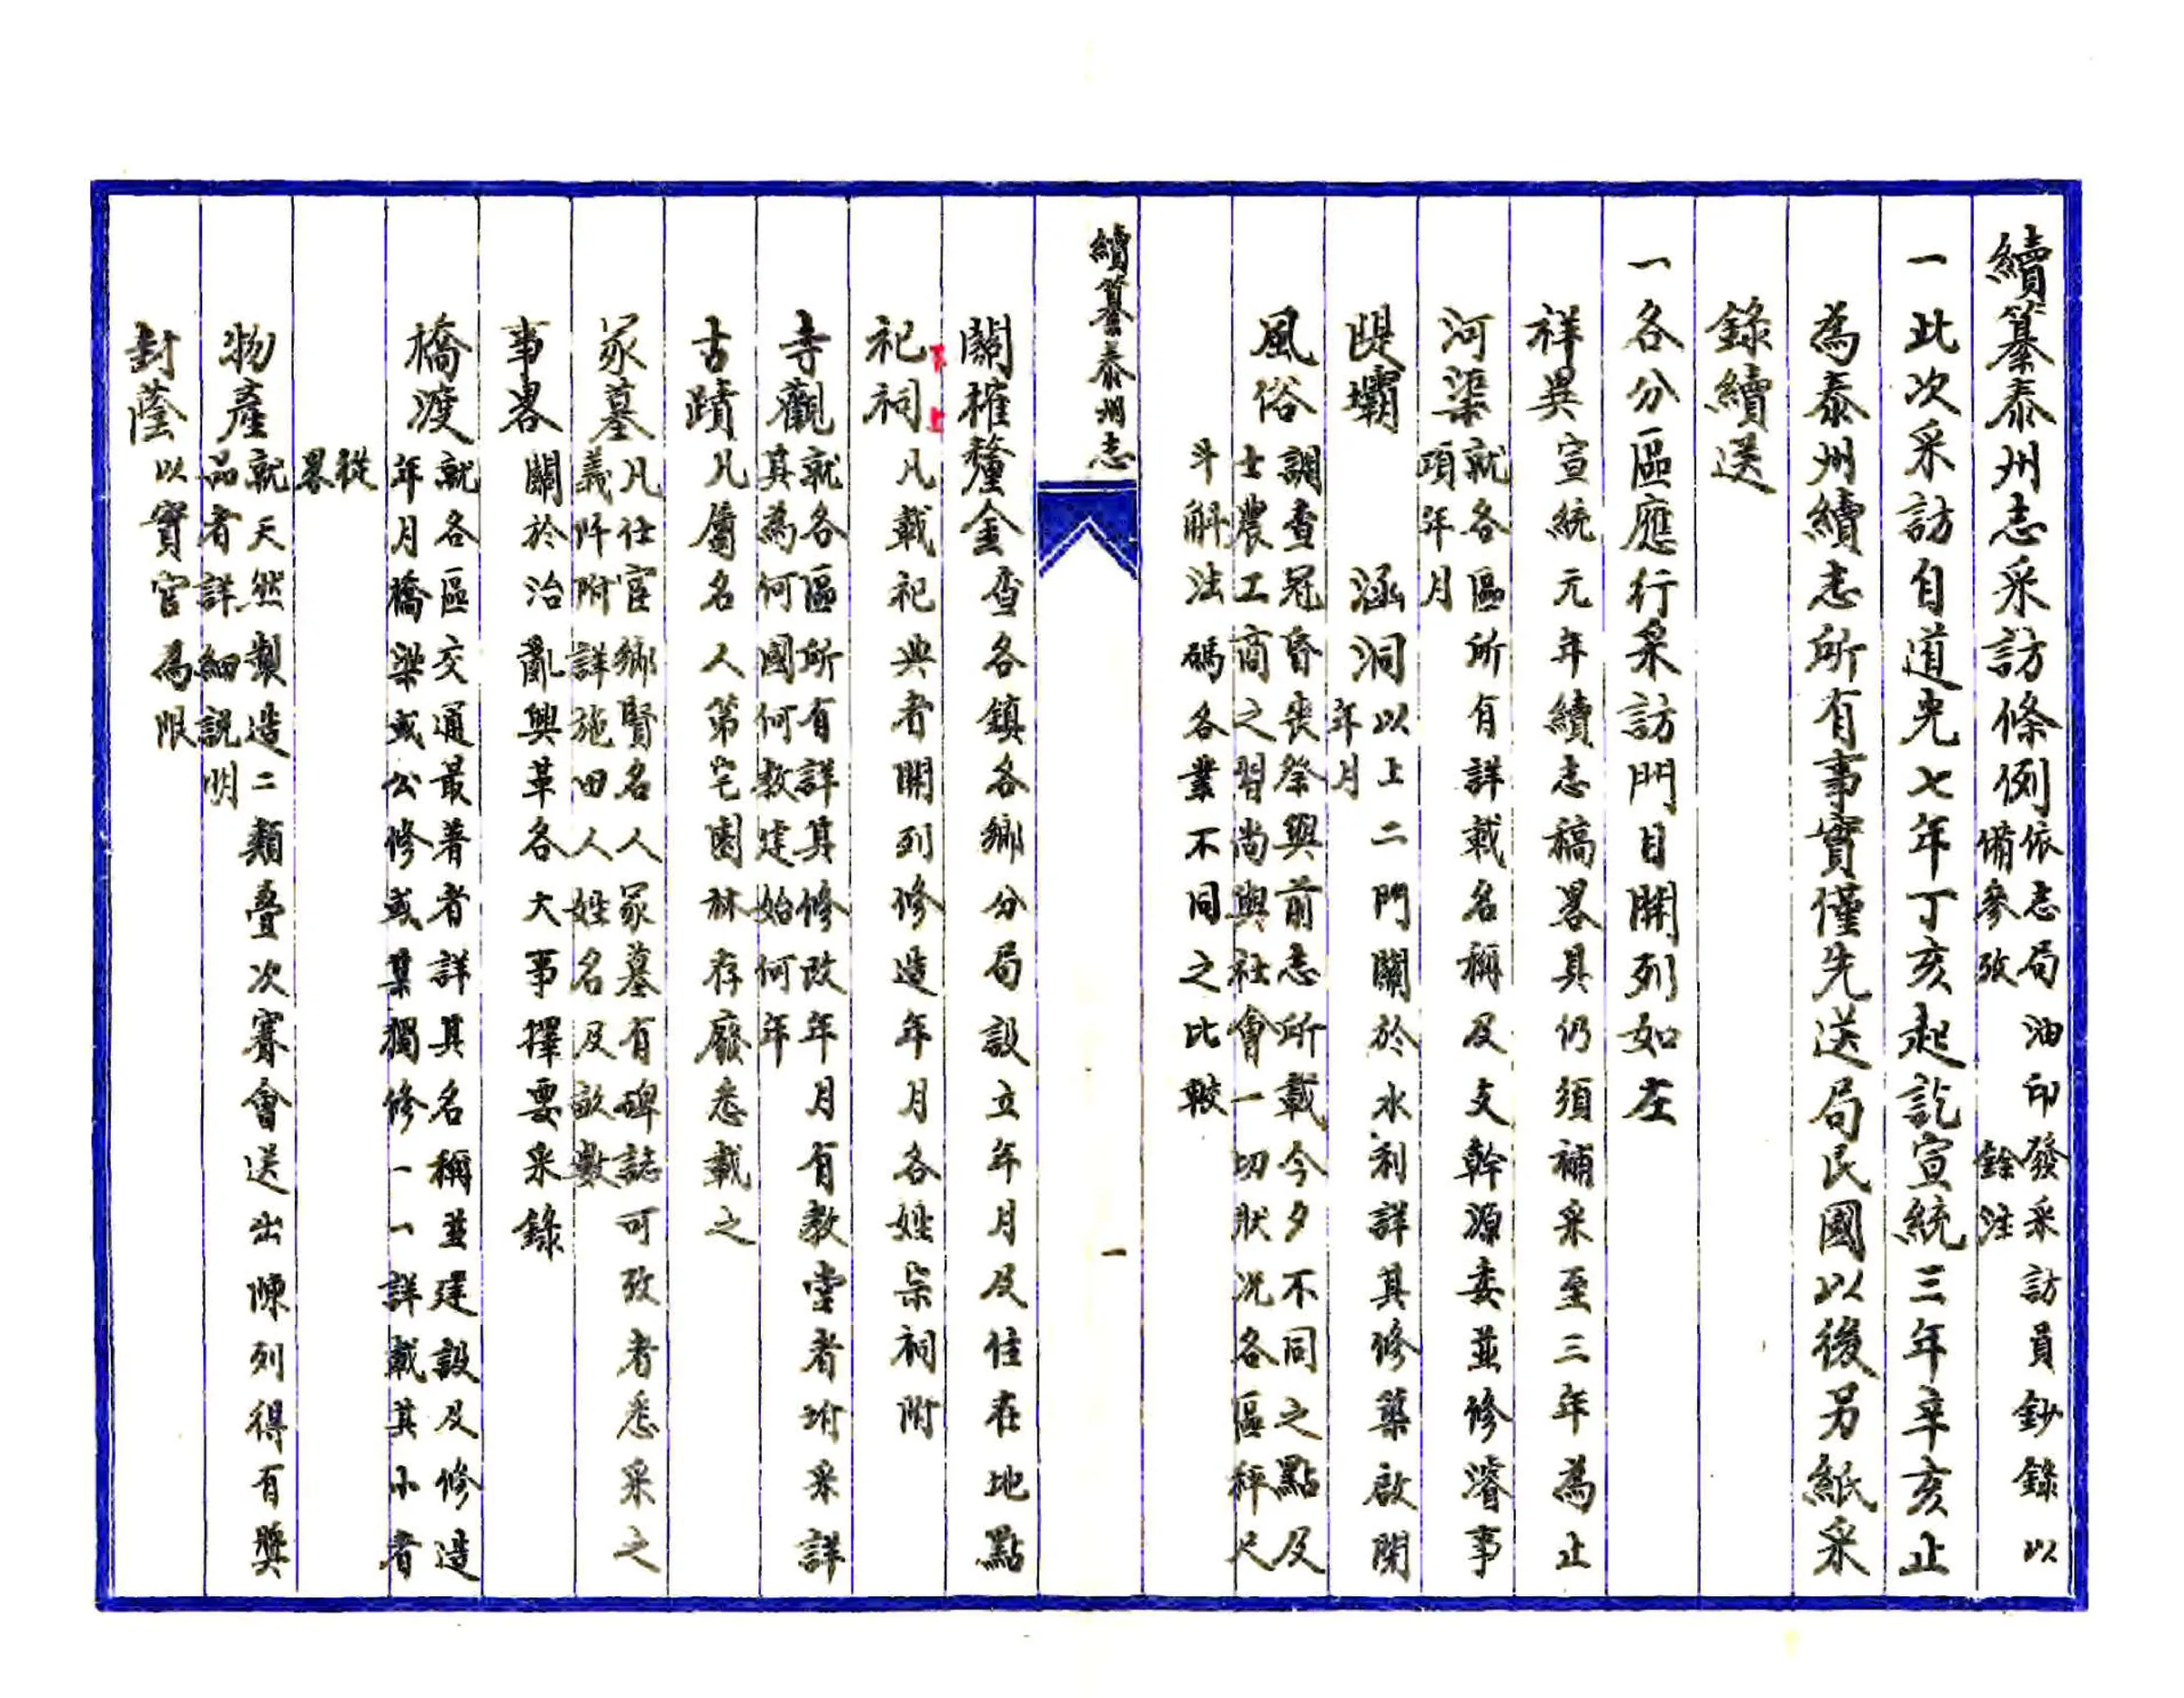 續纂泰州志采訪條例依志局油印發采訪員鈔錄以
備參攷 餘注
一此次采訪自道光七年丁亥起訖宣統三年辛亥止
為泰州續志所有事實僅先送局民國以後另紙采
錄續送
一各分區應行采訪門目開列如左
祥異宣統元年續志稿畧具仍須補采至三年為止
河渠就各區所有詳載名稱及支幹源委並修濬事
項年月
隄壩 涵洞以上二門關於水利詳其修築啟閉
年月
風俗調查冠昏喪祭與前志所載今夕不同之點及
士農工商之習尚與社會一切狀況各區秤尺
斗斛法碼各業不同之比較
續纂泰州志
一
關榷釐金查各鎮各鄉分局設立年月及住在地點
祀祠凡載祀典者開列修造年月各姓宗祠附
寺觀就各區所有詳其修改年月有教堂者坿采詳
其為何國何教建始何年
古蹟凡屬名人第宅園林存廢悉載之
冢墓凡仕宦鄉賢名人冢墓有碑誌可攷者悉采之
義阡附詳施田人姓名及畝數
事畧關於治亂興革各大事擇要采錄
橋渡就各區交通最著者詳其名稱並建設及修造
年月橋梁或公修或某獨修一一詳載其小者
從
畧
物產就天然製造二類疊次賽會送出陳列得有獎
品者詳細說明
封蔭以實官為限